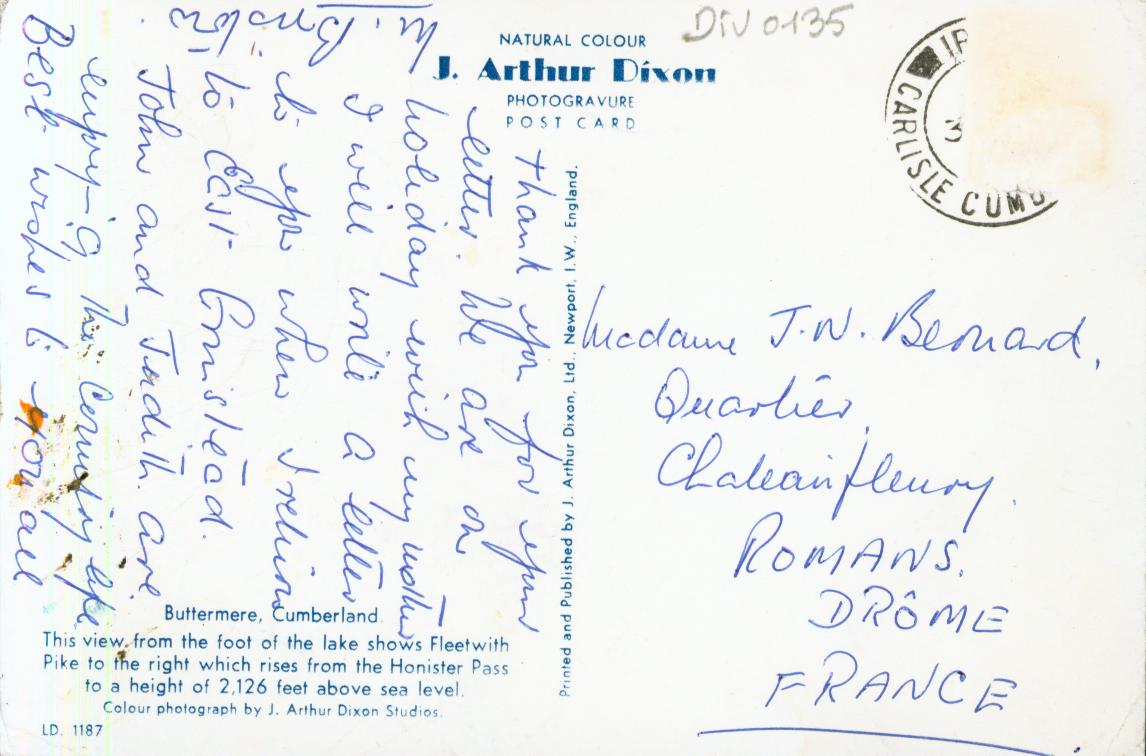 DIV 0135
NATURAL COLOUR
J. Arthur Dixon
PHOTOGRAVURE
POST CARD
CARLISLE CUMB
3
Thank you for your
letter. We are on
holiday with my mother
I will write a letter
to you when I return
to East Grinstead.
John and Judith are
enjoying the country life
Best wishes to you all
Printed and Published by J. Arthur Dixon, Ltd., Newport, I.W., England.
Madame J.N. Bernard,
Quartier
Chateaufleury.
ROMANS.
DRÔME
FRANCE
Buttermere, Cumberland.
This view from the foot of the lake shows Fleetwith
Pike to the right which rises from the Honister Pass
to a height of 2,126 feet above sea level.
Colour photograph by J. Arthur Dixon Studios.
LD. 1187